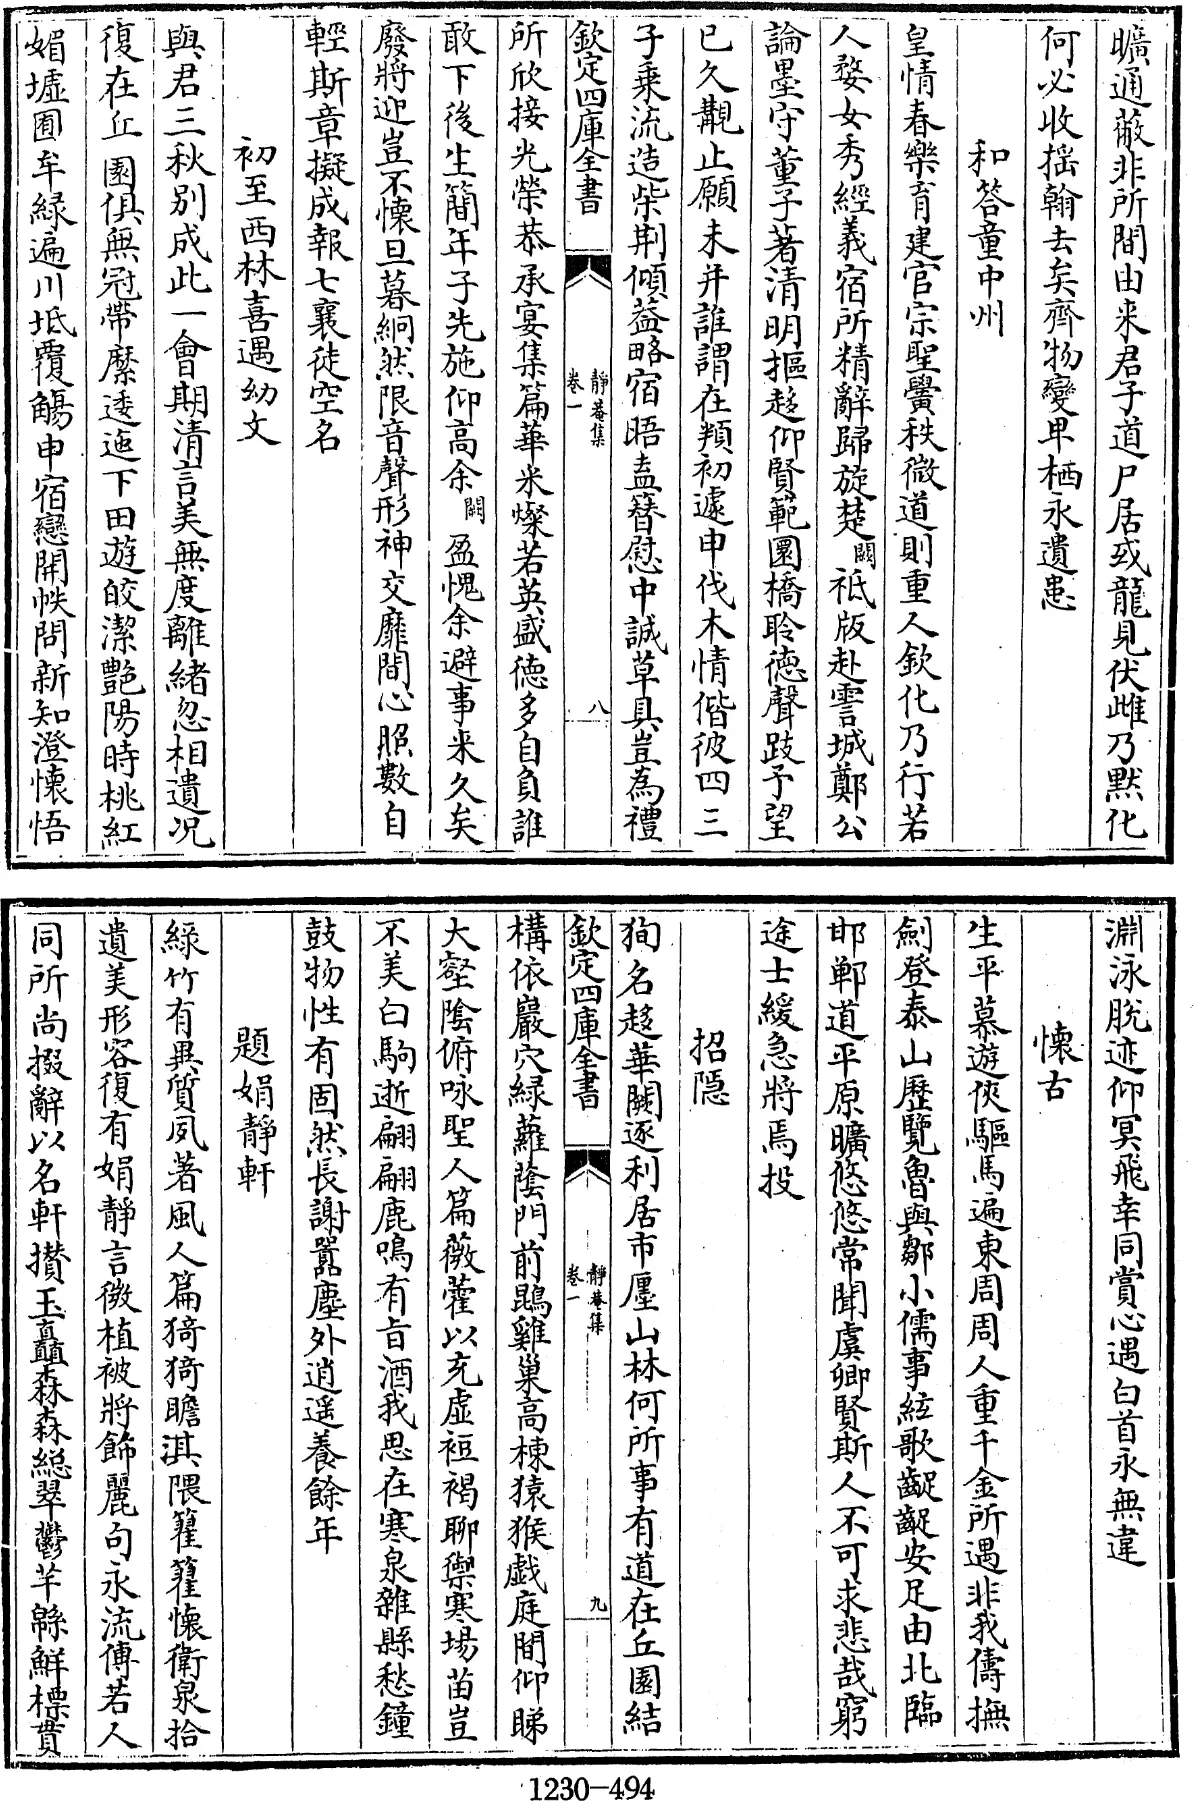 曠通蔽非所間由来君子道尸居或龍見伏雌乃黙化
何必收揺翰去矣齊物變卑栖永遺患
和答童中州
皇情春樂育建官宗聖黌秩微道則重人欽化乃行若
人婺女秀經義宿所精辭歸旋楚闕祗版赴霅城鄭公
論墨守董子著清明摳趍仰賢範圜橋聆徳聲跂予望
已久覯止願未并誰謂在頖初遽申伐木情偕彼四三
子乗流造柴荆傾葢略宿晤盍簪慰中誠草具豈為禮
欽定四庫全書
靜菴集
卷一
八
所欣接光榮恭承宴集篇華米燦若英盛徳多自負誰
敢下後生簡年子先施仰高余闕盈愧余避事来久矣
廢將迎豈不懐旦暮絅然限音聲形神交靡間心照數自
輕斯章擬成報七襄徒空名
初至西林喜遇幼文
與君三秋别成此一會期清言美無度離緒忽相遺况
復在丘園俱無冠帶縻逶迤下田遊皎潔艷陽時桃紅
媚墟囿牟緑遍川坻覆觴申宿戀開帙問新知澄懐悟
淵泳脱迹仰冥飛幸同賞心遇白首永無違
懐古
生平慕遊俠驅馬遍東周周人重千金所遇非我儔撫
劍登泰山歷覽魯與鄒小儒事絃歌齪齪安足由北臨
邯鄲道平原曠悠悠常聞虞卿賢斯人不可求悲哉窮
途士緩急將焉投
招隠
狥名趍華闕逐利居市廛山林何所事有道在丘園結
欽定四庫全書
靜菴集
卷一
九
構依巖穴緑蘿蔭門前鵾雞巢高棟猿猴戯庭間仰睇
大壑隂俯咏聖人篇薇藿以充虚裋褐聊禦寒場苗豈
不美白駒逝翩翩鹿鳴有旨酒我思在寒泉雜縣愁鐘
鼓物性有固然長謝囂塵外逍遥養餘年
題娟靜軒
緑竹有異質夙著風人篇猗猗瞻淇隈籊籊懐衛泉拾
遺美形容復有娟靜言微植被將飾麗句永流傳若人
同所尚掇辭以名軒攢玉矗森森總翠鬱芊緜鮮標貫
1230-494